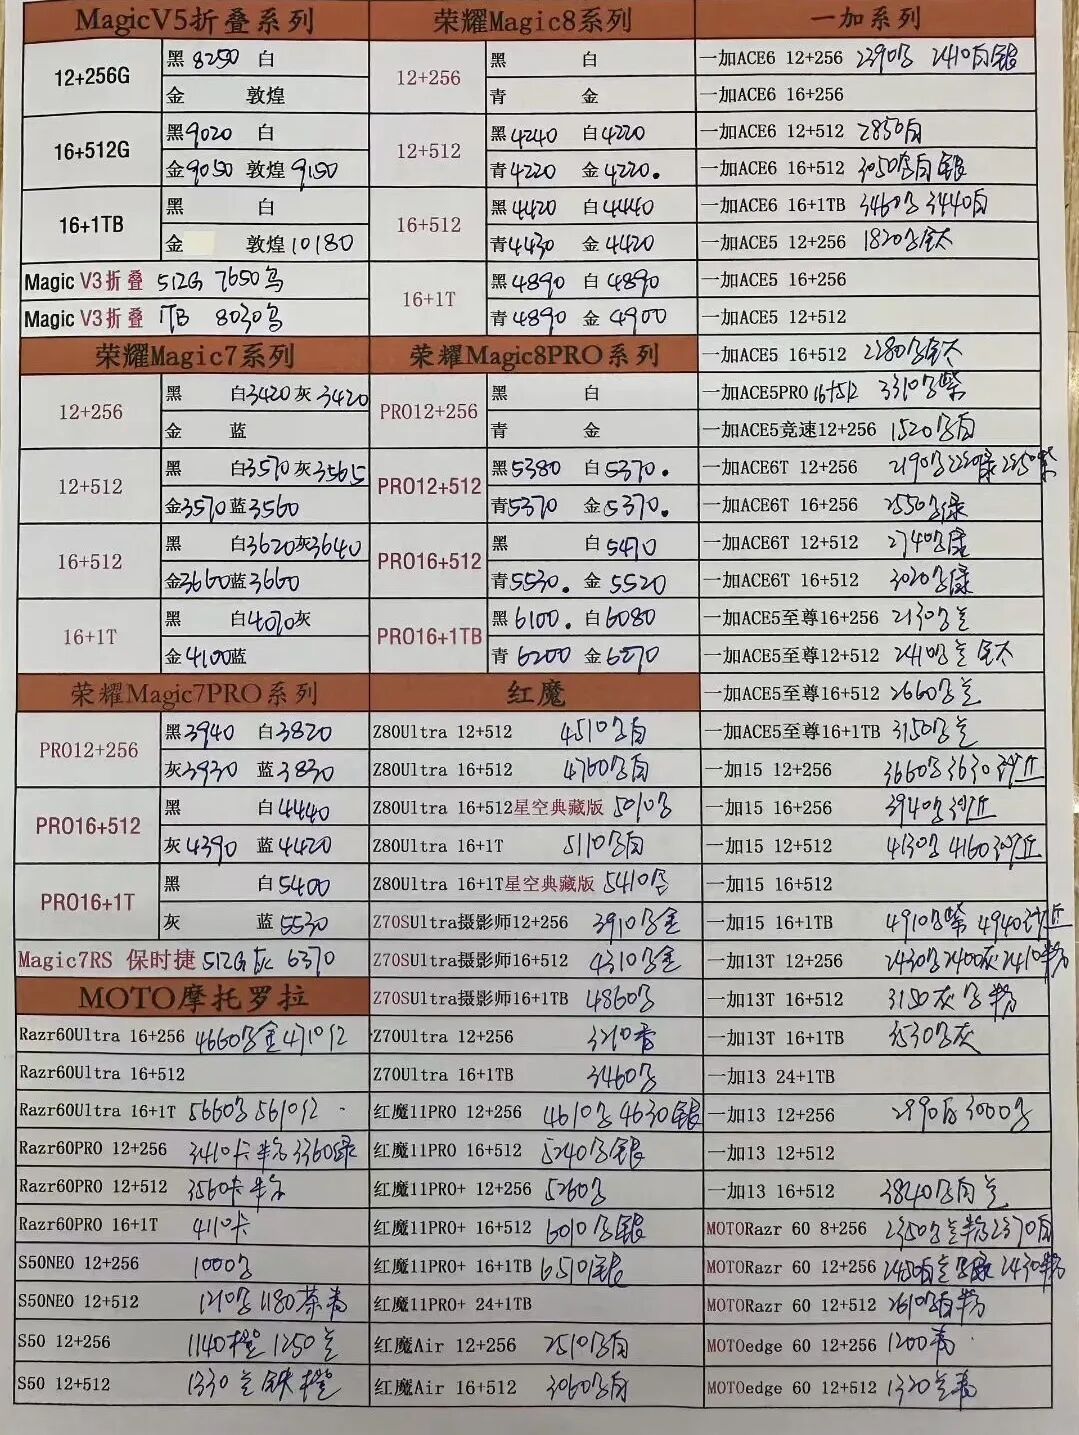 MagicV5折叠系列
12+256G
黑 8250 白
金 敦煌
16+512G
黑9020 白
金9050 敦煌 9150
16+1TB
黑 白
金 敦煌10180
Magic V3折叠 512G 7650鸟
Magic V3折叠 1TB 8030鸟
荣耀Magic7系列
12+256
黑 白3420灰 3420
金 蓝
12+512
黑 白3570灰3565
金3570蓝3560
16+512
黑 白3620灰3640
金3660蓝3660
16+1T
黑 白4070灰
金4100蓝
荣耀Magic7PRO系列
PRO12+256
黑3940 白3820
灰3930 蓝3830
PRO16+512
黑 白4440
灰4390 蓝4420
PRO16+1T
黑 白5400
灰 蓝5530
Magic7RS 保时捷 512G灰 6370
MOTO摩托罗拉
Razr60Ultra 16+256 4660 金4710
Razr60Ultra 16+512
Razr60Ultra 16+1T 5660 5610
Razr60PRO 12+256 3410卡 3360绿
Razr60PRO 12+512 3560卡
Razr60PRO 16+1T 4110卡
S50NEO 12+256 1000
S50NEO 12+512 1210 1180茶
S50 12+256 1140橙 1250兰
S50 12+512 1330兰 橙
荣耀Magic8系列
12+256
黑 白
青 金
12+512
黑4240 白4220
青4220 金4220.
16+512
黑4420 白4440
青4430 金4420
16+1T
黑4890 白4890
青4890 金4900
荣耀Magic8PRO系列
PRO12+256
黑 白
青 金
PRO12+512
黑5380 白5370.
青5370 金5370.
PRO16+512
黑 白5470
青5530. 金5520
PRO16+1TB
黑6100. 白6080
青6200 金6270
红魔
Z80Ultra 12+512 4510 白
Z80Ultra 16+512 4760 白
Z80Ultra 16+512星空典藏版 5010
Z80Ultra 16+1T 5110 白
Z80Ultra 16+1T星空典藏版 5410
Z70SUltra摄影师12+256 3910 金
Z70SUltra摄影师16+512 4310 金
Z70SUltra摄影师16+1TB 4860
Z70Ultra 12+256 3210
Z70Ultra 16+1TB 3460
红魔11PRO 12+256 4610 4630银
红魔11PRO 16+512 5240 银
红魔11PRO+ 12+256 5260
红魔11PRO+ 16+512 6010 银
红魔11PRO+ 16+1TB 6510银
红魔11PRO+ 24+1TB
红魔Air 12+256 2510 白
红魔Air 16+512 3060 白
一加系列
一加ACE6 12+256 2390 2410白银
一加ACE6 16+256
一加ACE6 12+512 2850白
一加ACE6 16+512 3050 白银
一加ACE6 16+1TB 3460 3440白
一加ACE5 12+256 1820 钛
一加ACE5 16+256
一加ACE5 12+512
一加ACE5 16+512 2280 钛
一加ACE5PRO 16+512 3310 紫
一加ACE5竞速12+256 1520 白
一加ACE6T 12+256 2190 绿 紫
一加ACE6T 16+256 2550 绿
一加ACE6T 12+512 2740 绿
一加ACE6T 16+512 3020 绿
一加ACE5至尊16+256 2130 兰
一加ACE5至尊12+512 2410 兰 钛
一加ACE5至尊16+512 2660 兰
一加ACE5至尊16+1TB 3150 兰
一加15 12+256 3660 3630 沙丘
一加15 16+256 3940 沙丘
一加15 12+512 4130 4160沙丘
一加15 16+512
一加15 16+1TB 4910 紫 4940沙丘
一加13T 12+256 2430 2400灰 2410粉
一加13T 16+512 3150灰 粉
一加13T 16+1TB 3530 灰
一加13 24+1TB
一加13 12+256 2990白3000
一加13 12+512
一加13 16+512 3840 白兰
MOTORazr 60 8+256 2350 兰粉2370白
MOTORazr 60 12+256 2450白兰 绿 2430粉
MOTORazr 60 12+512 2610 白粉
MOTOedge 60 12+256 1200
MOTOedge 60 12+512 1320兰